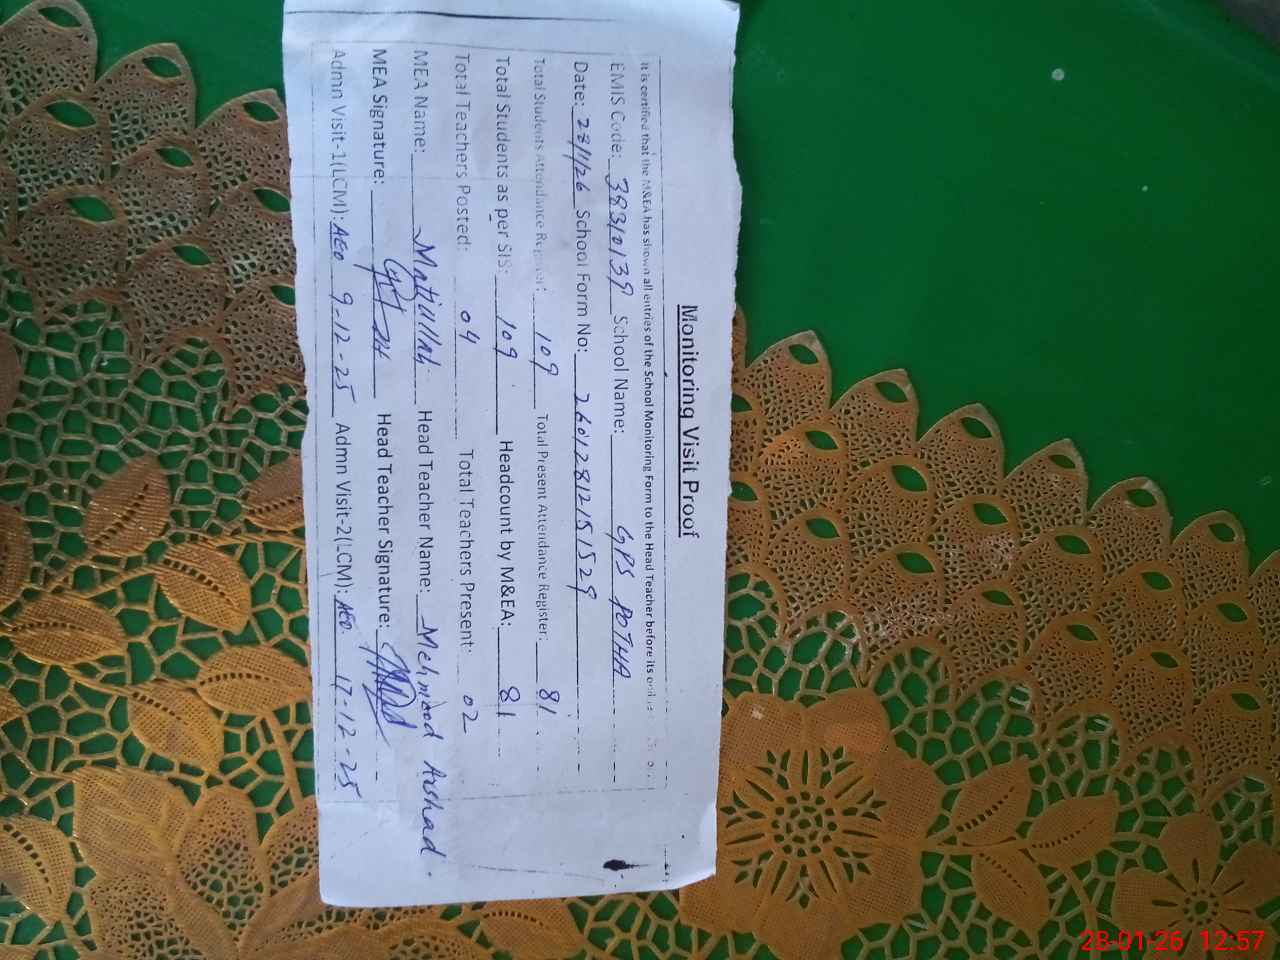 Monitoring Visit Proof
It is certified that the M&EA has shown all entries of the School Monitoring Form to the Head Teacher before its
EMIS Code: 38310139 School Name: GPS POTHA
Date: 28/1/26 School Form No: 26012812151529
Total Students Attendance Register: 109 Total Present Attendance Register: 81
Total Students as per SIS: 109 Headcount by M&EA: 81
Total Teachers Posted: 04 Total Teachers Present: 02
MEA Name: Matiullah Head Teacher Name: Mehmood Arshad
MEA Signature: Head Teacher Signature:
Admn Visit-1(LCM): AEO 9-12-25 Admn Visit-2(LCM): AEO 17-12-25
28-01-26 12:57